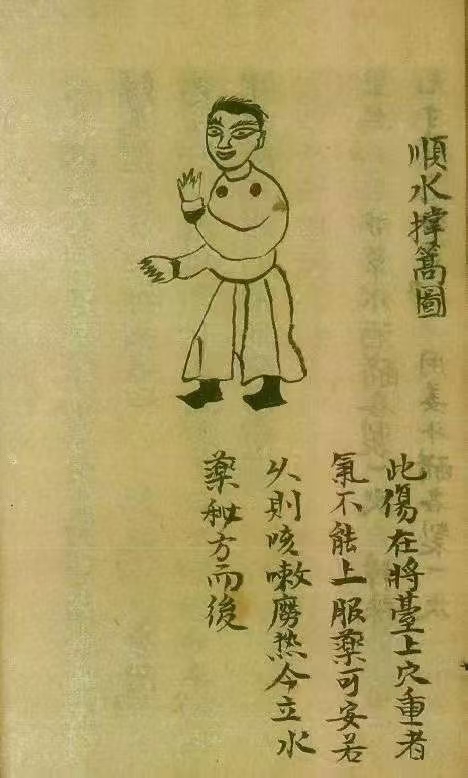 順水撑篙圖
此傷在將臺上穴重者
氣不能上服藥可安若
久則咳嗽磨热今立水
藥秘方而後